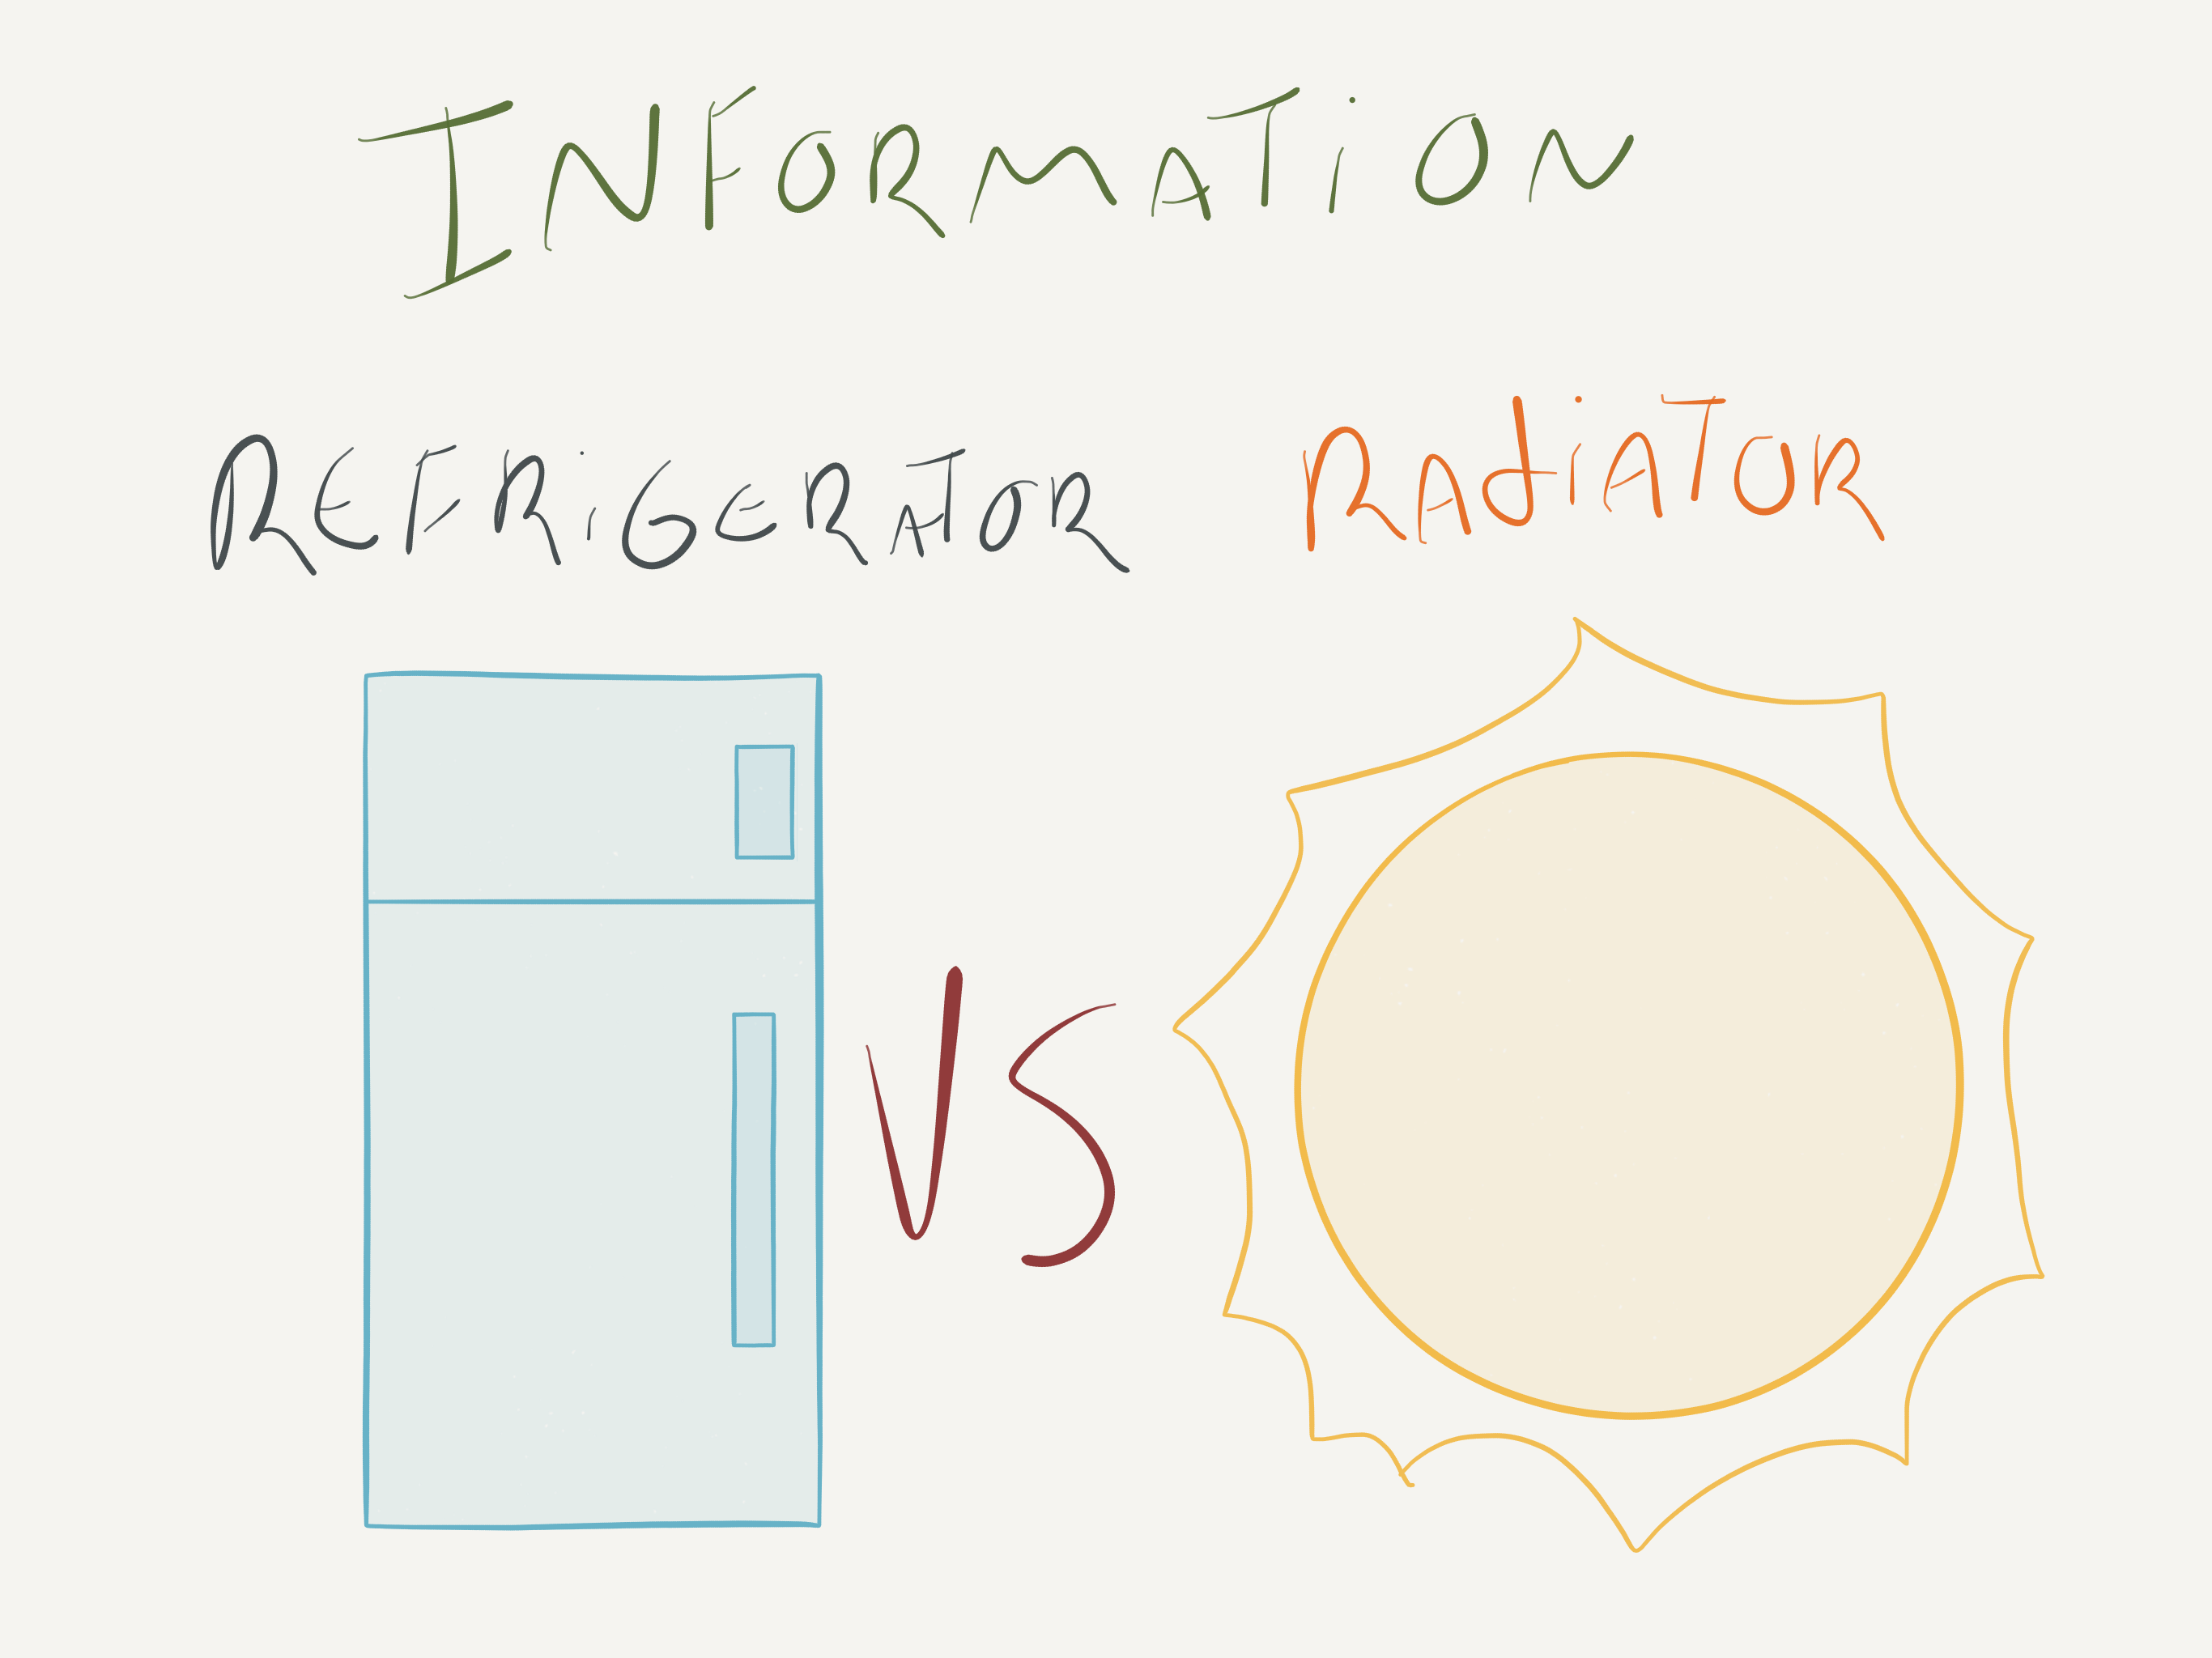 INFORMATION
REFRiGERATOR RAdiATOR
VS